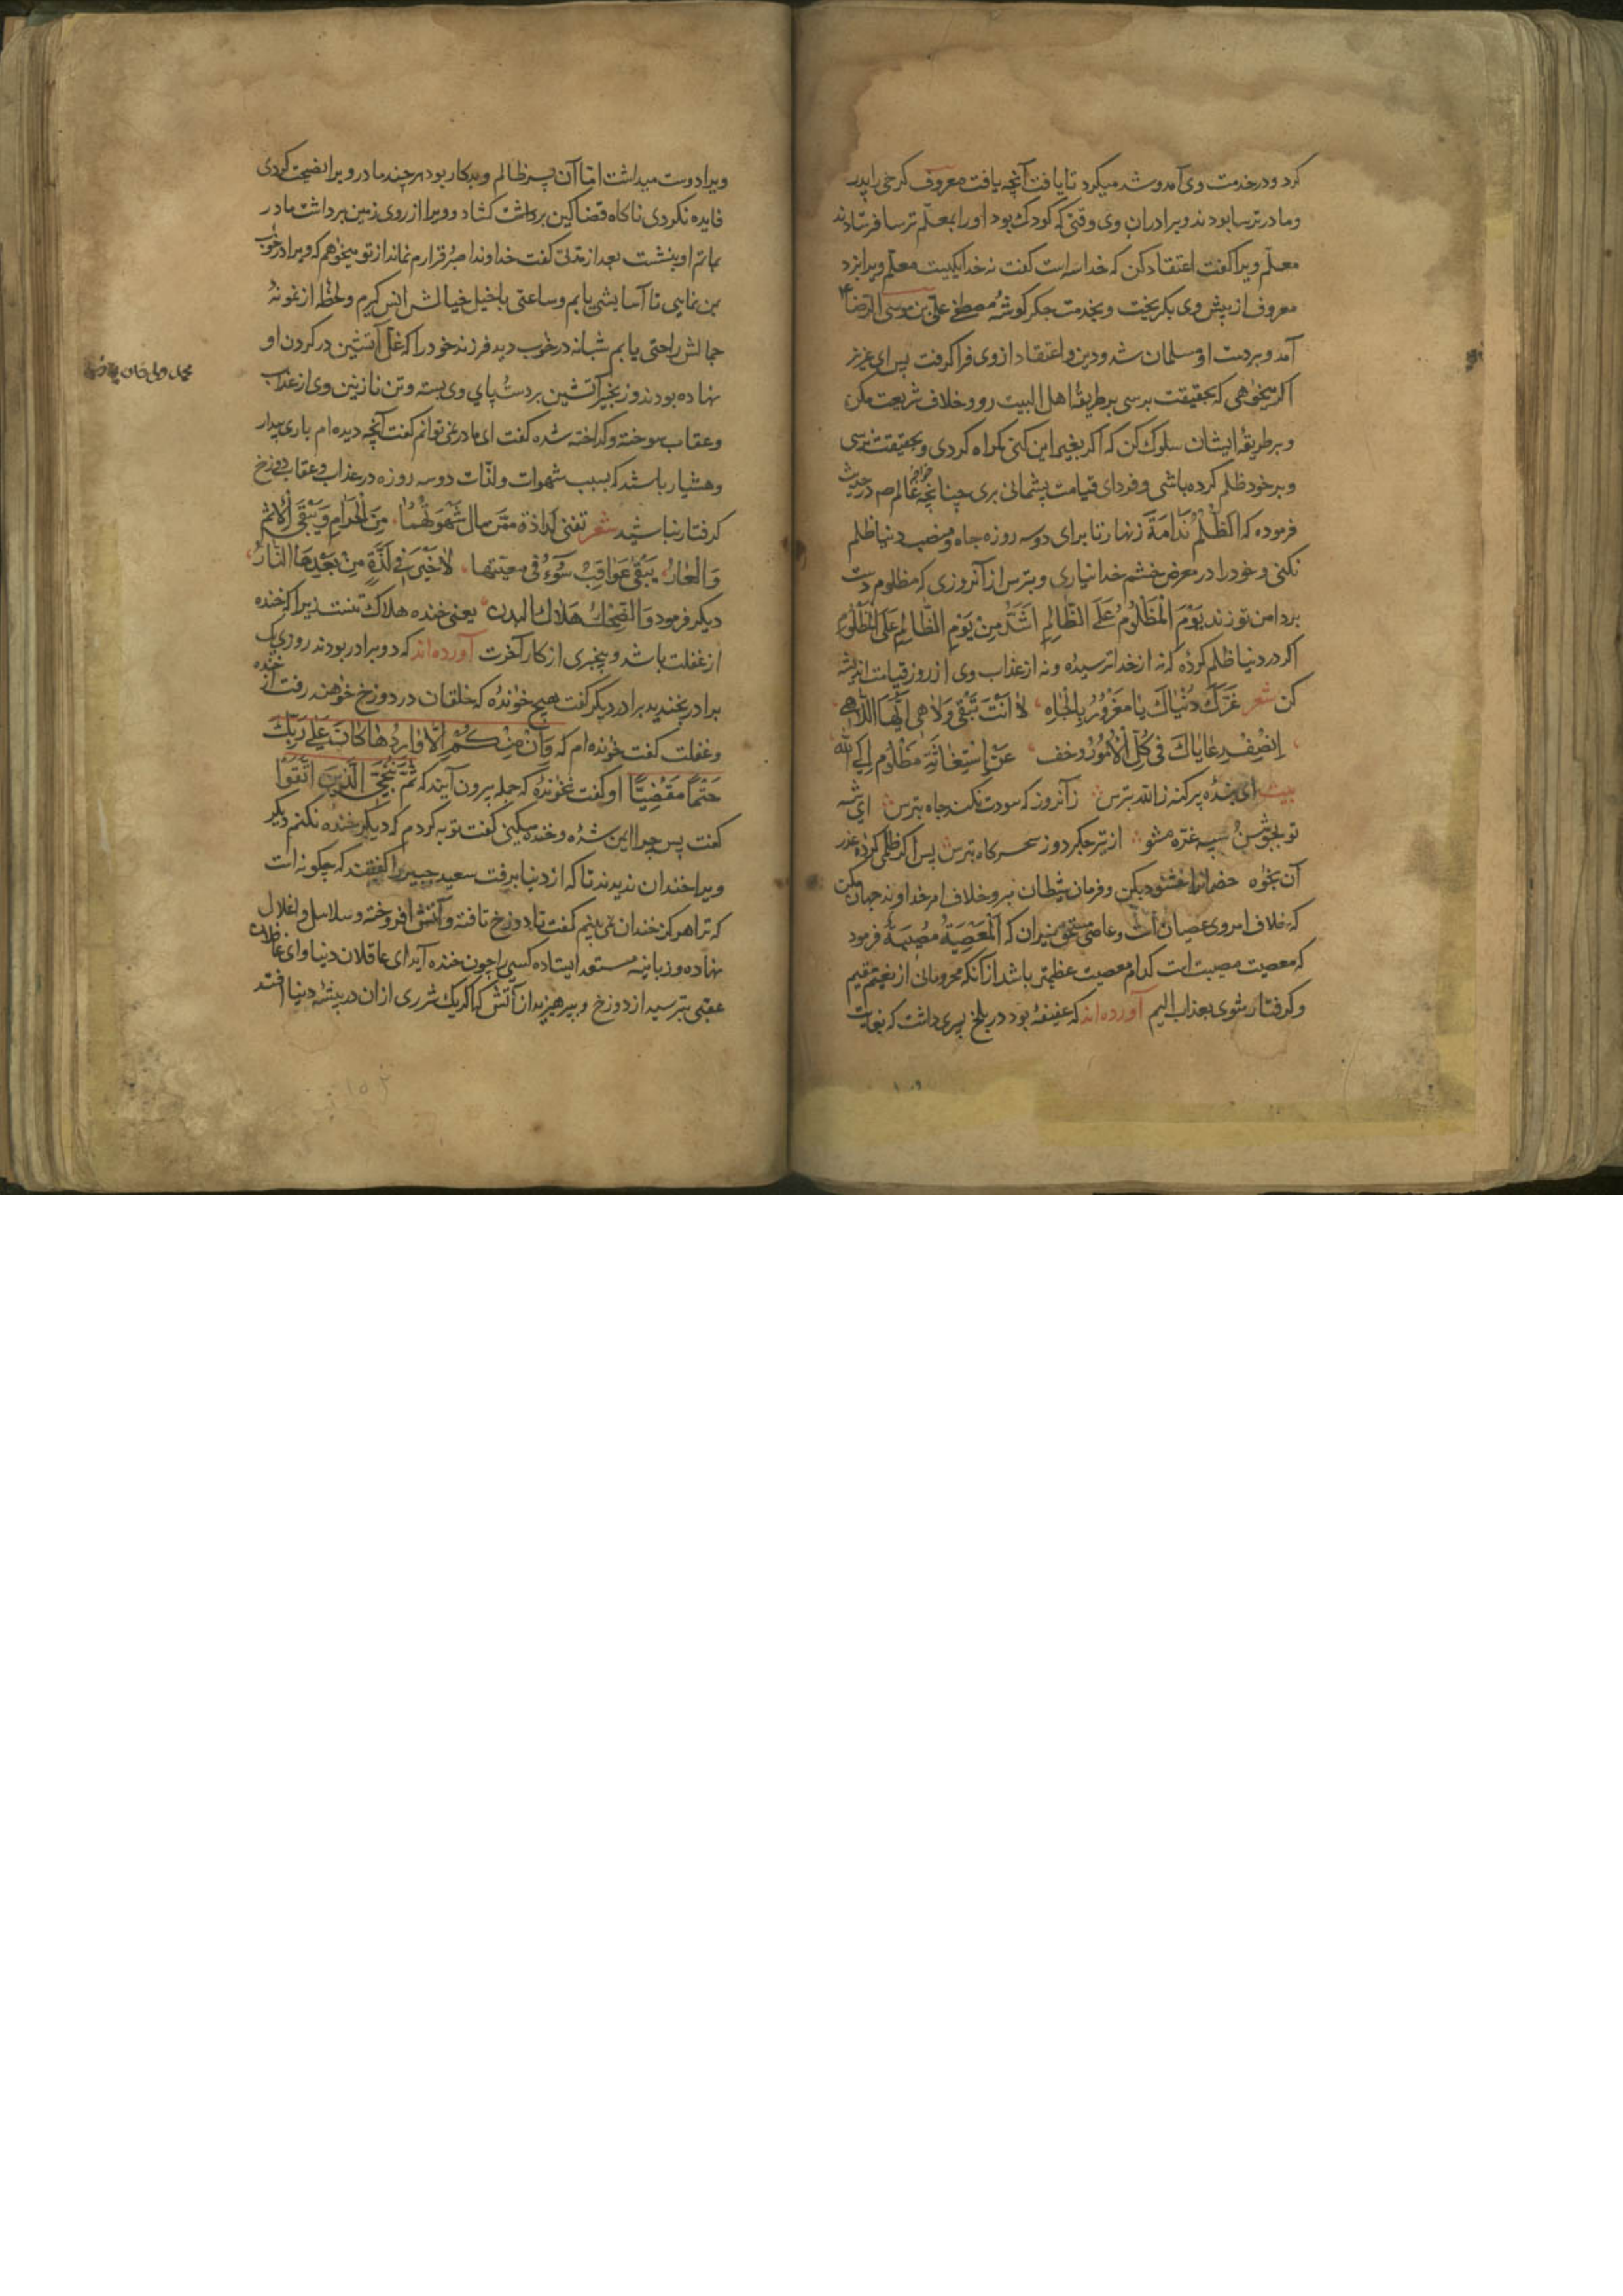 کرد و در خدمت وی آمد و شد میکرد تا یافت آنچه یافت معروف کرخی را پدر
و مادر ترسا بودند و برادران وی وقتی که کودک بود او را بمعلّم ترسا فرستادند
معلّم ویرا گفت اعتقاد کن که خدا سه است گفت نه خدا یکیست معلّم ویرا بزد
معروف از پیش وی بگریخت و بخدمت جگر گوشهٔ مصطفی علی بن موسی الرضا ۴
آمد و بر دست او مسلمان شد و دین و اعتقاد از وی فرا گرفت پس ای عزیز
اگر میخواهی که بحقیقت برسی بر طریقهٔ اهل البیت رو و خلاف شریعت مکن
و بر طریقهٔ ایشان سلوک کن که اگر بغیر این کنی گمراه کردی و بحقیقت نرسی
و بر خود ظلم کرده باشی و فردای قیامت پشمانی بری چنانچه خواجه عالم صم در حدیث
فرموده که اَلظُّلْمُ نَدَامَةٌ زنهار تا برای دو سه روزه جاه و منصب دنیا ظلم
نکنی و خود را در معرض خشم خدا نیاری و بترس از آنروزی که مظلوم دست
بر دامن تو زند یَوْمَ الْمَظْلُومُ عَلَی الظَّالِمِ اَشَدُّ مِنْ یَوْمِ الظَّالِمِ عَلَی الْمَظْلُومْ
اگر در دنیا ظلم کردهٔ که نه از خدا ترسیدهٔ و نه از عذاب وی از روز قیامت اندیشه
کن شعر غَرَّکَ دُنْیَاکَ یَا مَغْرُورُ بِالْجَاهِ لَا اَنْتَ تَبْقَی وَلَا هِیَ اَیُّهَا اللَّاهِی
اِنْصِفْ رِعَایَاکَ فِی کُلِّ الْاُمُورِ وَخَفْ عَنْ اِسْتِغَاثَةِ مَظْلُومٍ اِلَی اللّٰه
بیت ای بندهٔ پر گنه ز الله بترس زآنروز که سودت نکند جاه بترس ای شه
تو بجوشن سپه غرّه مشو از تیر جگر دوز سحر گاه بترس پس اگر ظلمی کردهٔ عذر
آن بخواه خصمانرا خشنود بکن و فرمان شیطان نبر و خلاف امر خداوند جهان مکن
که خلاف امر وی عصیان است و عاصی مستحق نیران که اَلْمَعْصِیَةُ مُصِیبَةٌ فرمود
که معصیت مصیبت است کدام معصیت عظیمتر باشد از آنکه محرومانی از نعیم مقیم
و گرفتار شوی بعذاب الیم آورده‌اند که عفیفهٔ بود در بلخ پسری داشت که بغایت
ویرا دوست میداشت امّا آن پسر ظالم و بدکار بود هر چند مادر ویرا نصیحت کردی
فایده نکردی ناگاه قضا کمین برداشت گشاد و ویرا از روی زمین برداشت مادر
بماتم او بنشست بعد از مدّتی گفت خداوندا صبر و قرارم نماند از تو میخواهم که ویرا در خواب
بمن نمایی تا آسایشی یابم و ساعتی با خیل خیالش انس گیرم و لحظهٔ از نمونهٔ
جمالش راحتی یابم شبانه در خواب دید فرزند خود را که غلّ آتشین در گردن او
نهاده بودند و زنجیر آتشین بر دست و پای وی بسته و تن نازنین وی از عذاب
و عقاب سوخته و گداخته شده گفت ای مادر نمی‌توانم گفت آنچه دیده‌ام باری بیدار
و هشیار باشد که بسبب شهوات و لذّات دو سه روزه در عذاب و عقاب دوزخ
گرفتار نباشید شعر تفنی لذاذة ممّن نال شَهْوَتَهُمَا مِنَ الْحَرَامِ وَیَبْقَی الْاِثْمُ
وَالْعَارُ یَبْقَی عَوَاقِبُ سُوءٍ فی مغبّتها لَا خَیْرَ فِی لَذَّةٍ مِنْ بَعْدِهَا النَّارُ
دیگر فرمود وَالضِّحْكُ هَلَاكُ الْبَدَنِ یعنی خنده هلاک تنست زیرا که خنده
از غفلت باشد و بیخبری از کار آخرت آورده‌اند که دو برادر بودند روزی یک
برادر بخندید برادر دیگر گفت هیچ خواندهٔ که خلقان در دوزخ خواهند رفت از خنده
و غفلت گفت خوانده‌ام که وَاِنْ مِنْکُمْ اِلَّا وَارِدُهَا کَانَ عَلَی رَبِّكَ
حَتْمًا مَقْضِیًّا او گفت نخواندهٔ که جمله برون آیند که ثُمَّ نُنَجِّی الَّذِینَ اتَّقَوْا
گفت پس چرا این شده و خنده میکنی گفت توبه کردم که دیگر خنده نکنم دیگر
ویرا خندان ندیدند تا که از دنیا برفت سعید جبیر را گفتند که چگونه است
که ترا هرگز خندان نمی‌بینم گفت تا دوزخ تافته و آتش افروخته و سلاسل و اغلال
نهاده و زبانیه مستعد ایستاده کسی را چون خنده آید ای عاقلان دنیا و ای غافلان
عقبی بترسید از دوزخ و بپرهیزید از آتش که اگر یک شرری از ان در بیشهٔ دنیا افتد
محمد ولی خان
۱۵۲